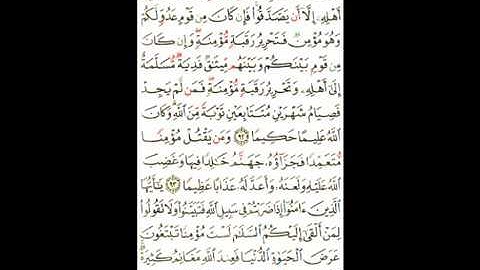 أَهْلِهِۦٓ إِلَّآ أَن يَصَّدَّقُوا۟ ۚ فَإِن كَانَ مِن قَوْمٍ عَدُوٍّ لَّكُمْ
وَهُوَ مُؤْمِنٌ فَتَحْرِيرُ رَقَبَةٍ مُّؤْمِنَةٍ ۖ وَإِن كَانَ
مِن قَوْمٍۭ بَيْنَكُمْ وَبَيْنَهُم مِّيثَـٰقٌ فَدِيَةٌ مُّسَلَّمَةٌ
إِلَىٰٓ أَهْلِهِۦ وَتَحْرِيرُ رَقَبَةٍ مُّؤْمِنَةٍ ۖ فَمَن لَّمْ يَجِدْ
فَصِيَامُ شَهْرَيْنِ مُتَتَابِعَيْنِ تَوْبَةً مِّنَ ٱللَّهِ ۗ وَكَانَ
ٱللَّهُ عَلِيمًا حَكِيمًا ٩٢ وَمَن يَقْتُلْ مُؤْمِنًا
مُّتَعَمِّدًا فَجَزَآؤُهُۥ جَهَنَّمُ خَـٰلِدًا فِيهَا وَغَضِبَ
ٱللَّهُ عَلَيْهِ وَلَعَنَهُۥ وَأَعَدَّ لَهُۥ عَذَابًا عَظِيمًا ٩٣ يَـٰٓأَيُّهَا
ٱلَّذِينَ ءَامَنُوٓا۟ إِذَا ضَرَبْتُمْ فِى سَبِيلِ ٱللَّهِ فَتَبَيَّنُوا۟ وَلَا تَقُولُوا۟
لِمَنْ أَلْقَىٰٓ إِلَيْكُمُ ٱلسَّلَـٰمَ لَسْتَ مُؤْمِنًا تَبْتَغُونَ
عَرَضَ ٱلْحَيَوٰةِ ٱلدُّنْيَا فَعِندَ ٱللَّهِ مَغَانِمُ كَثِيرَةٌ